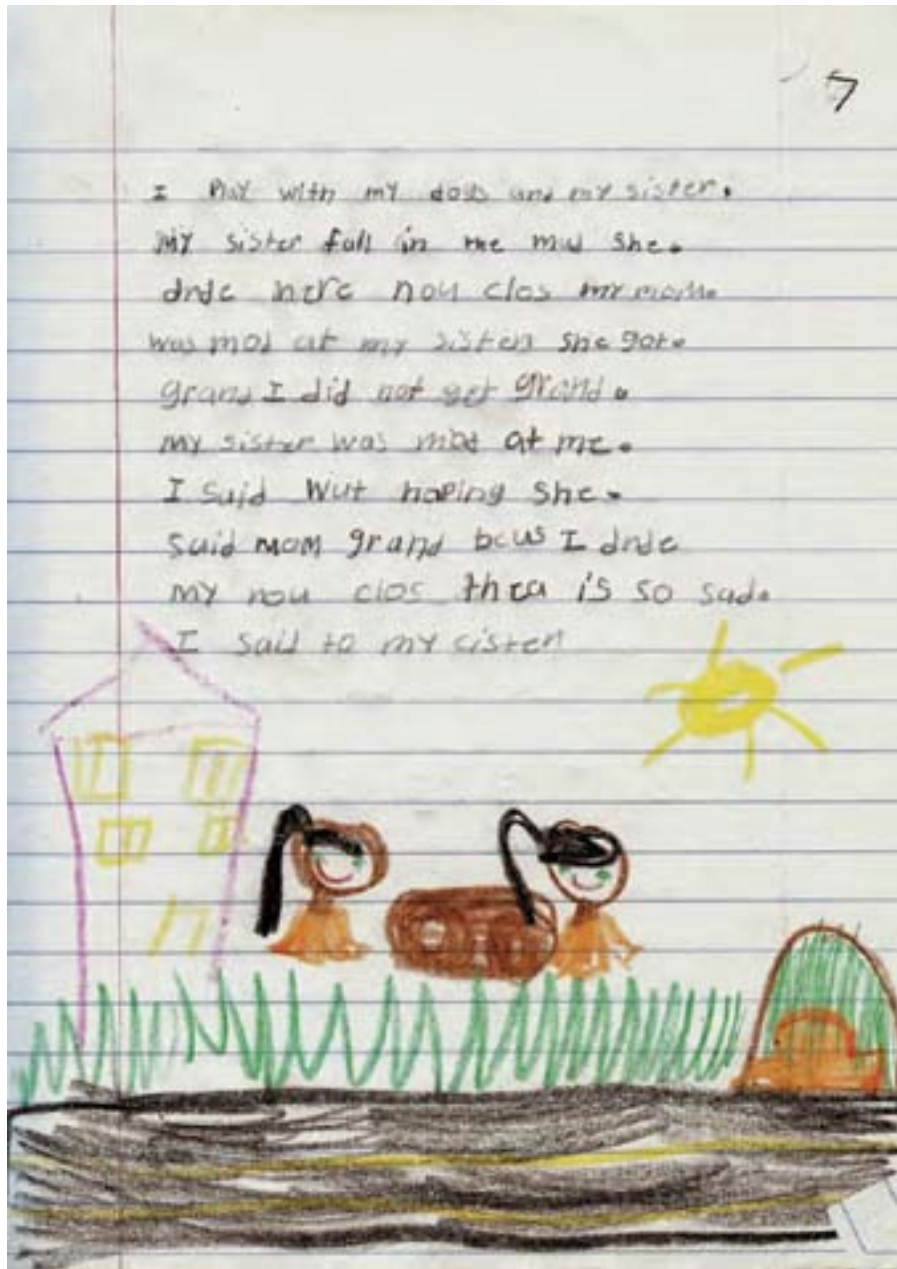 7
I Play with my dogs and my sister.
My sister fall in the mud she.
drde here nou clos my mom.
was mad at my sister she got.
grand I did not get grand.
my sister was mad at me.
I Said Wut haping she.
Said mom grand bcus I drde
my nou clos thea is so sad.
I said to my cister